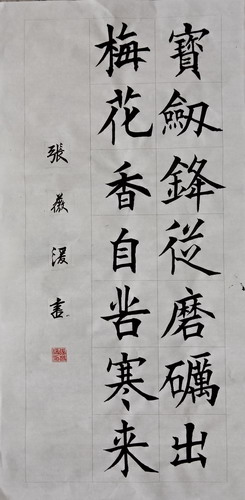 寶劔鋒從磨礪出
梅花香自苦寒来
張薇湲書